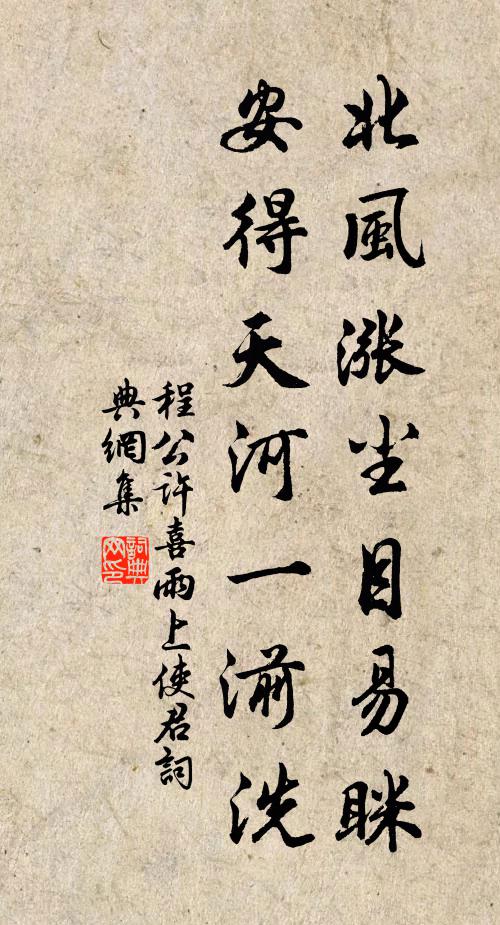 北風漲尘目易眯
安得天河一湔洗
程公許喜雨上使君詞
典網集
詞典
网印